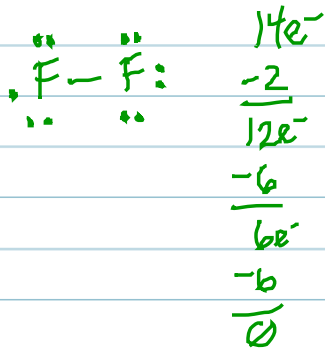 F − F
14e⁻
−2
12e⁻
−6
6e⁻
−6
0